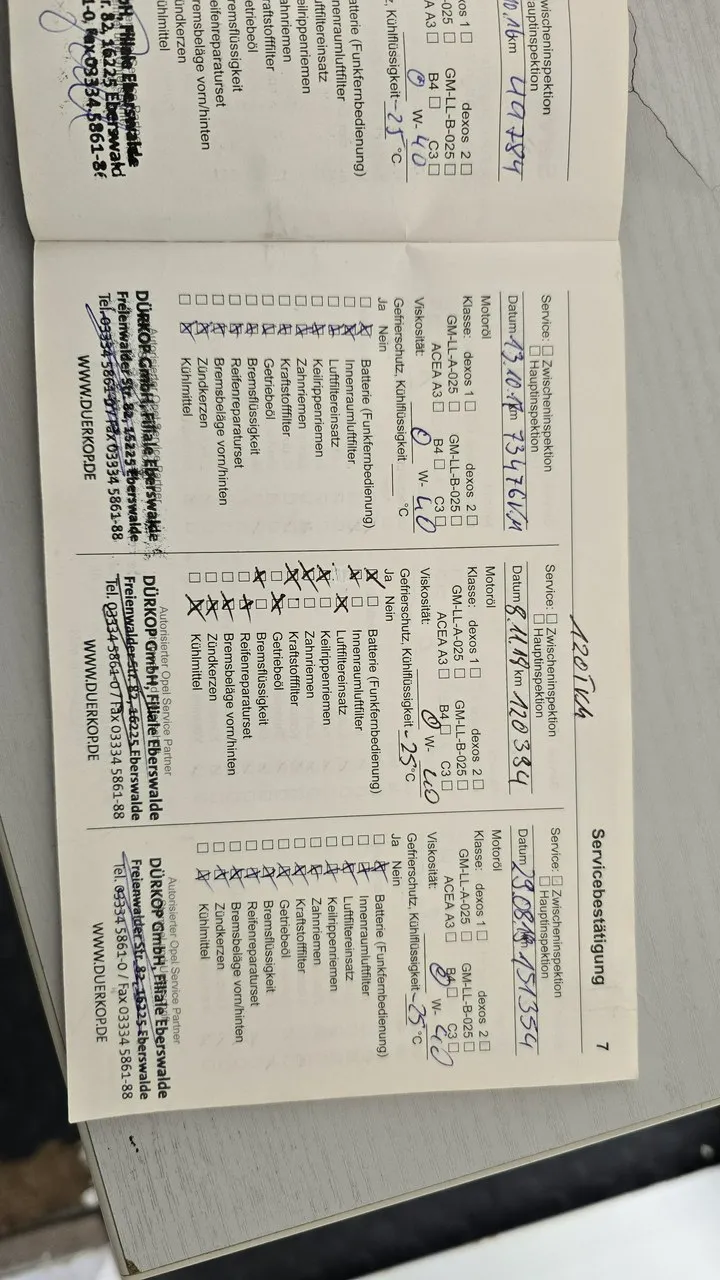 Servicebestätigung 7
120Tkm
Service: □ Zwischeninspektion
□ Hauptinspektion
Datum 29.08.19 151354
Motoröl
Klasse: dexos 1 □ dexos 2 □
GM-LL-A-025 □ GM-LL-B-025 □
ACEA A3 □ B4 □ C3 □
Viskosität: 0 W- 40
Gefrierschutz, Kühlflüssigkeit -25 °C
Ja Nein
□ ☒ Batterie (Funkfernbedienung)
□ ☒ Innenraumluftfilter
□ ☒ Luftfiltereinsatz
□ ☒ Keilrippenriemen
□ ☒ Zahnriemen
□ ☒ Kraftstofffilter
□ ☒ Getriebeöl
□ ☒ Bremsflüssigkeit
□ ☒ Reifenreparaturset
□ ☒ Bremsbeläge vorn/hinten
□ ☒ Zündkerzen
□ ☒ Kühlmittel
Autorisierter Opel Service Partner
DÜRKOP GmbH, Filiale Eberswalde
Freienwalder Str. 82, 16225 Eberswalde
Tel. 03334 5861-0 / Fax 03334 5861-88
WWW.DUERKOP.DE
Service: □ Zwischeninspektion
□ Hauptinspektion
Datum 8.11.18 km 120384
Motoröl
Klasse: dexos 1 □ dexos 2 □
GM-LL-A-025 □ GM-LL-B-025 □
ACEA A3 □ B4 □ C3 □
Viskosität: 0 W- 40
Gefrierschutz, Kühlflüssigkeit -25 °C
Ja Nein
☒ □ Batterie (Funkfernbedienung)
☒ □ Innenraumluftfilter
□ ☒ Luftfiltereinsatz
☒ □ Keilrippenriemen
☒ □ Zahnriemen
☒ □ Kraftstofffilter
□ ☒ Getriebeöl
☒ □ Bremsflüssigkeit
□ ☒ Reifenreparaturset
□ ☒ Bremsbeläge vorn/hinten
□ ☒ Zündkerzen
□ ☒ Kühlmittel
Autorisierter Opel Service Partner
DÜRKOP GmbH, Filiale Eberswalde
Freienwalder Str. 82, 16225 Eberswalde
Tel. 03334 5861-0 / Fax 03334 5861-88
WWW.DUERKOP.DE
Service: □ Zwischeninspektion
□ Hauptinspektion
Datum 13.10.17 km 73476
Motoröl
Klasse: dexos 1 □ dexos 2 □
GM-LL-A-025 □ GM-LL-B-025 □
ACEA A3 □ B4 □ C3 □
Viskosität: 0 W- 40
Gefrierschutz, Kühlflüssigkeit °C
Ja Nein
□ ☒ Batterie (Funkfernbedienung)
□ ☒ Innenraumluftfilter
□ ☒ Luftfiltereinsatz
□ ☒ Keilrippenriemen
□ ☒ Zahnriemen
□ ☒ Kraftstofffilter
□ ☒ Getriebeöl
□ ☒ Bremsflüssigkeit
□ ☒ Reifenreparaturset
□ ☒ Bremsbeläge vorn/hinten
□ ☒ Zündkerzen
□ ☒ Kühlmittel
DÜRKOP GmbH, Filiale Eberswalde
Freienwalder Str. 82, 16225 Eberswalde
Tel. 03334 5861-0 / Fax 03334 5861-88
WWW.DUERKOP.DE
wischeninspektion
auptinspektion
0.16 km 49784
xos 1 □ dexos 2 □
-025 □ GM-LL-B-025 □
A A3 □ B4 □ C3 □
0 W- 40
z, Kühlflüssigkeit -25 °C
atterie (Funkfernbedienung)
nenraumluftfilter
uftfiltereinsatz
eilrippenriemen
ahnriemen
raftstofffilter
etriebeöl
remsflüssigkeit
eifenreparaturset
remsbeläge vorn/hinten
ündkerzen
ühlmittel
bH, Filiale Eberswalde
r. 82, 16225 Eberswald
1-0, Fax 03334 5861-8